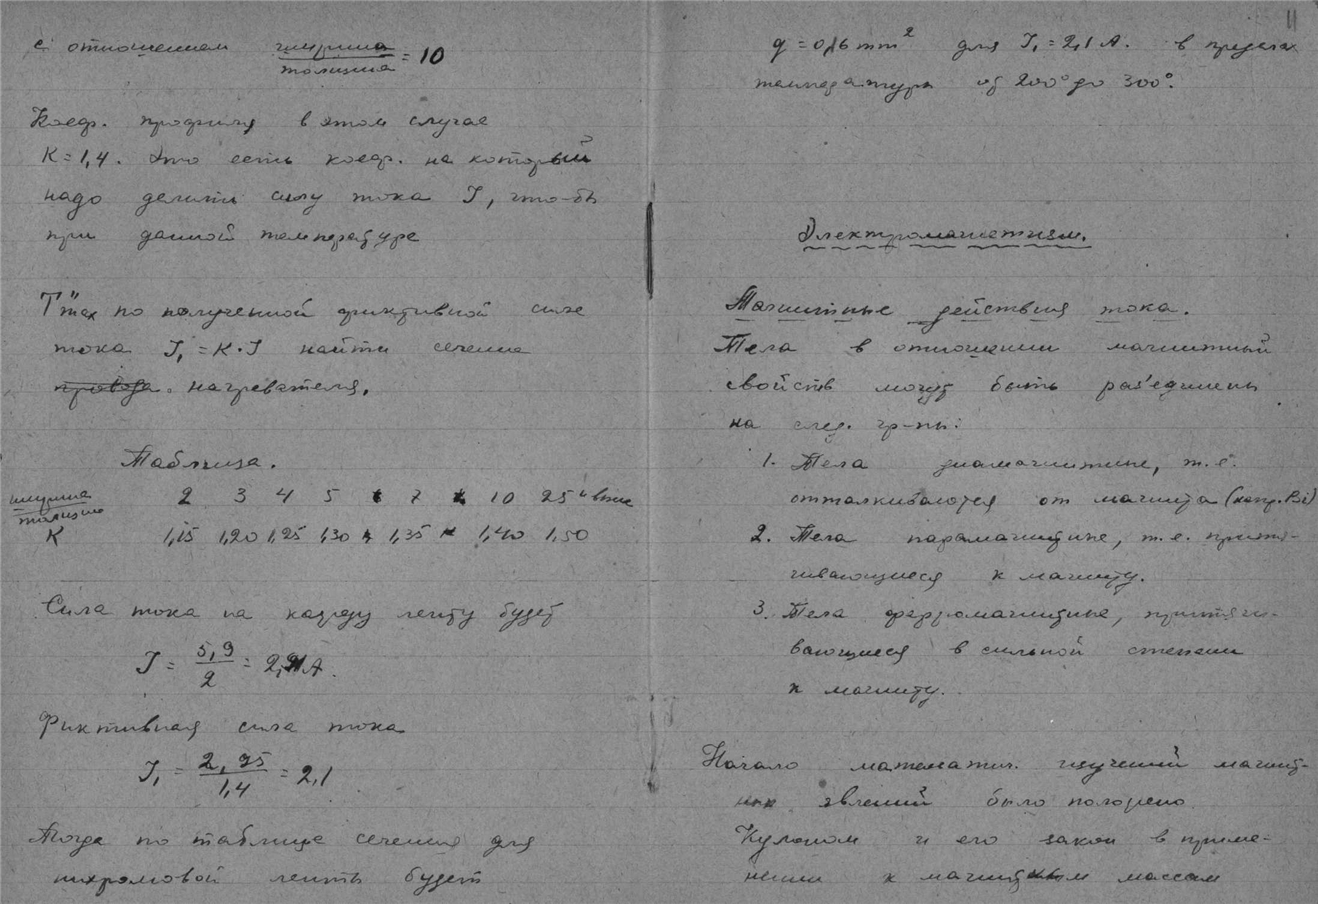 с отношением ширина/толщина = 10
Коеф. профиля в этом случае
К = 1,4. Это есть коеф. на который
надо делить силу тока J, что-бы
при данной температуре
T"max по полученной фиктивной силе
тока J₁ = K·J найти сечение
провода. нагревателя.
Таблица.
ширина/толщина 2 3 4 5 7 10 25 и выше
К 1,15 1,20 1,25 1,30 1,35 1,40 1,50
Сила тока на каждую ленту будет
J = 5,9/2 = А.
Фиктивная сила тока
J₁ = 2,95/1,4 = 2,1
Тогда по таблице сечения для
нихромовой ленты будет
11
q = 0,16 mm² для J₁ = 2,1 А. в пределах
температуры от 200° до 300°.
Электромагнетизм.
Магнитные действия тока.
Тела в отношении магнитный
свойств могут быть раз'единены
на след. гр-пы:
1. Тела диамагнитные, т.е.
отталкиваются от магнита (напр. Bi)
2. Тела парамагнитные, т.е. притя-
гивающиеся к магниту.
3. Тела ферромагнитные, притяги-
вающиеся в сильной степени
к магниту.
Начало математич. изучений магнит-
ных явлений было положено
Кулоном и его закон в приме-
нении к магнитным массам